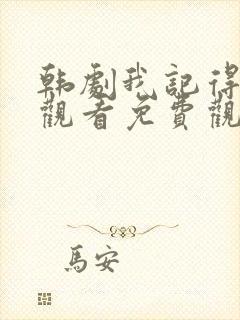 韩劇我記得
觀看免費觀
馬安